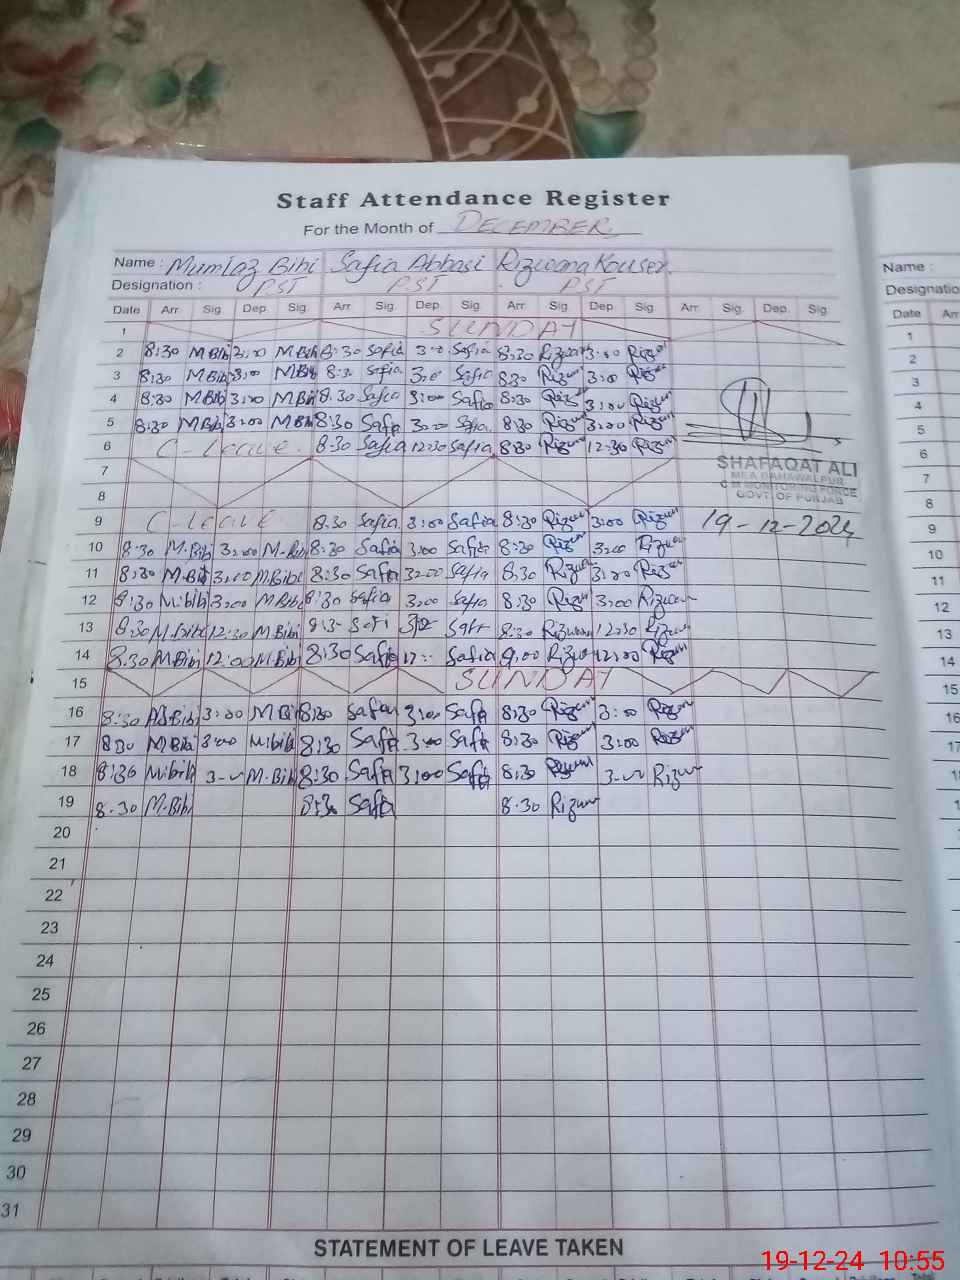 Staff Attendance Register
For the Month of DECEMBER
Name : Mumtaz Bibi Safia Abbasi Rizwana Kouser.
Designation : PST PST PST
Date Arr. Sig. Dep. Sig. Arr. Sig. Dep. Sig. Arr. Sig. Dep. Sig. Arr. Sig. Dep. Sig.
1 SUNDAY
2 8:30 M Bibi 3:00 M Bibi 8:30 Safia 3:00 Safia 8:30 Rizwan 3:00 Rizwan
3 8:30 M Bibi 3:00 M Bibi 8:30 Safia 3:00 Safia 8:30 Rizwan 3:00 Rizwan
4 8:30 M Bibi 3:00 M Bibi 8:30 Safia 3:00 Safia 8:30 Rizwan 3:00 Rizwan
5 8:30 M Bibi 3:00 M Bibi 8:30 Safia 3:00 Safia 8:30 Rizwan 3:00 Rizwan
6 C-Leave. 8:30 Safia 12:30 Safia 8:30 Rizwan 12:30 Rizwan
SHAFAQAT ALI
MEA BAHAWALPUR
C.M MONITORING FORCE
GOVT. OF PUNJAB
7
8
9 C-Leave 8:30 Safia 3:00 Safia 8:30 Rizwan 3:00 Rizwan 19-12-2024
10 8:30 M.Bibi 3:00 M.Bibi 8:30 Safia 3:00 Safia 8:30 Rizwan 3:00 Rizwan
11 8:30 M.Bibi 3:00 M.Bibi 8:30 Safia 3:00 Safia 8:30 Rizwan 3:00 Rizwan
12 8:30 M.bibi 3:00 M.Bibi 8:30 Safia 3:00 Safia 8:30 Rizwan 3:00 Rizwan
13 8:30 M.Bibi 12:30 M.Bibi 8:3- Safi Safi 8:30 Rizwan 12:30 Rizwan
14 8:30 M.Bibi 12:00 M.Bibi 8:30 Safia 12-- Safia 9:00 Rizwan 12:00 Rizwan
15 SUNDAY
16 8:30 M.Bibi 3:00 M.Bibi 8:30 Safia 3:00 Safia 8:30 Rizwan 3:00 Rizwan
17 8:30 M.Bibi 3:00 M.bibi 8:30 Safia 3:00 Safia 8:30 Rizwan 3:00 Rizwan
18 8:30 M.bibi 3-- M.Bibi 8:30 Safia 3:00 Safia 8:30 Rizwan 3-- Rizwan
19 8:30 M.Bibi 8:30 Safia 8:30 Rizwan
20
21
22
23
24
25
26
27
28
29
30
31
STATEMENT OF LEAVE TAKEN
Name :
Designatio
Date Arr
1
2
3
4
5
6
7
8
9
10
11
12
13
14
15
16
17
19-12-24 10:55